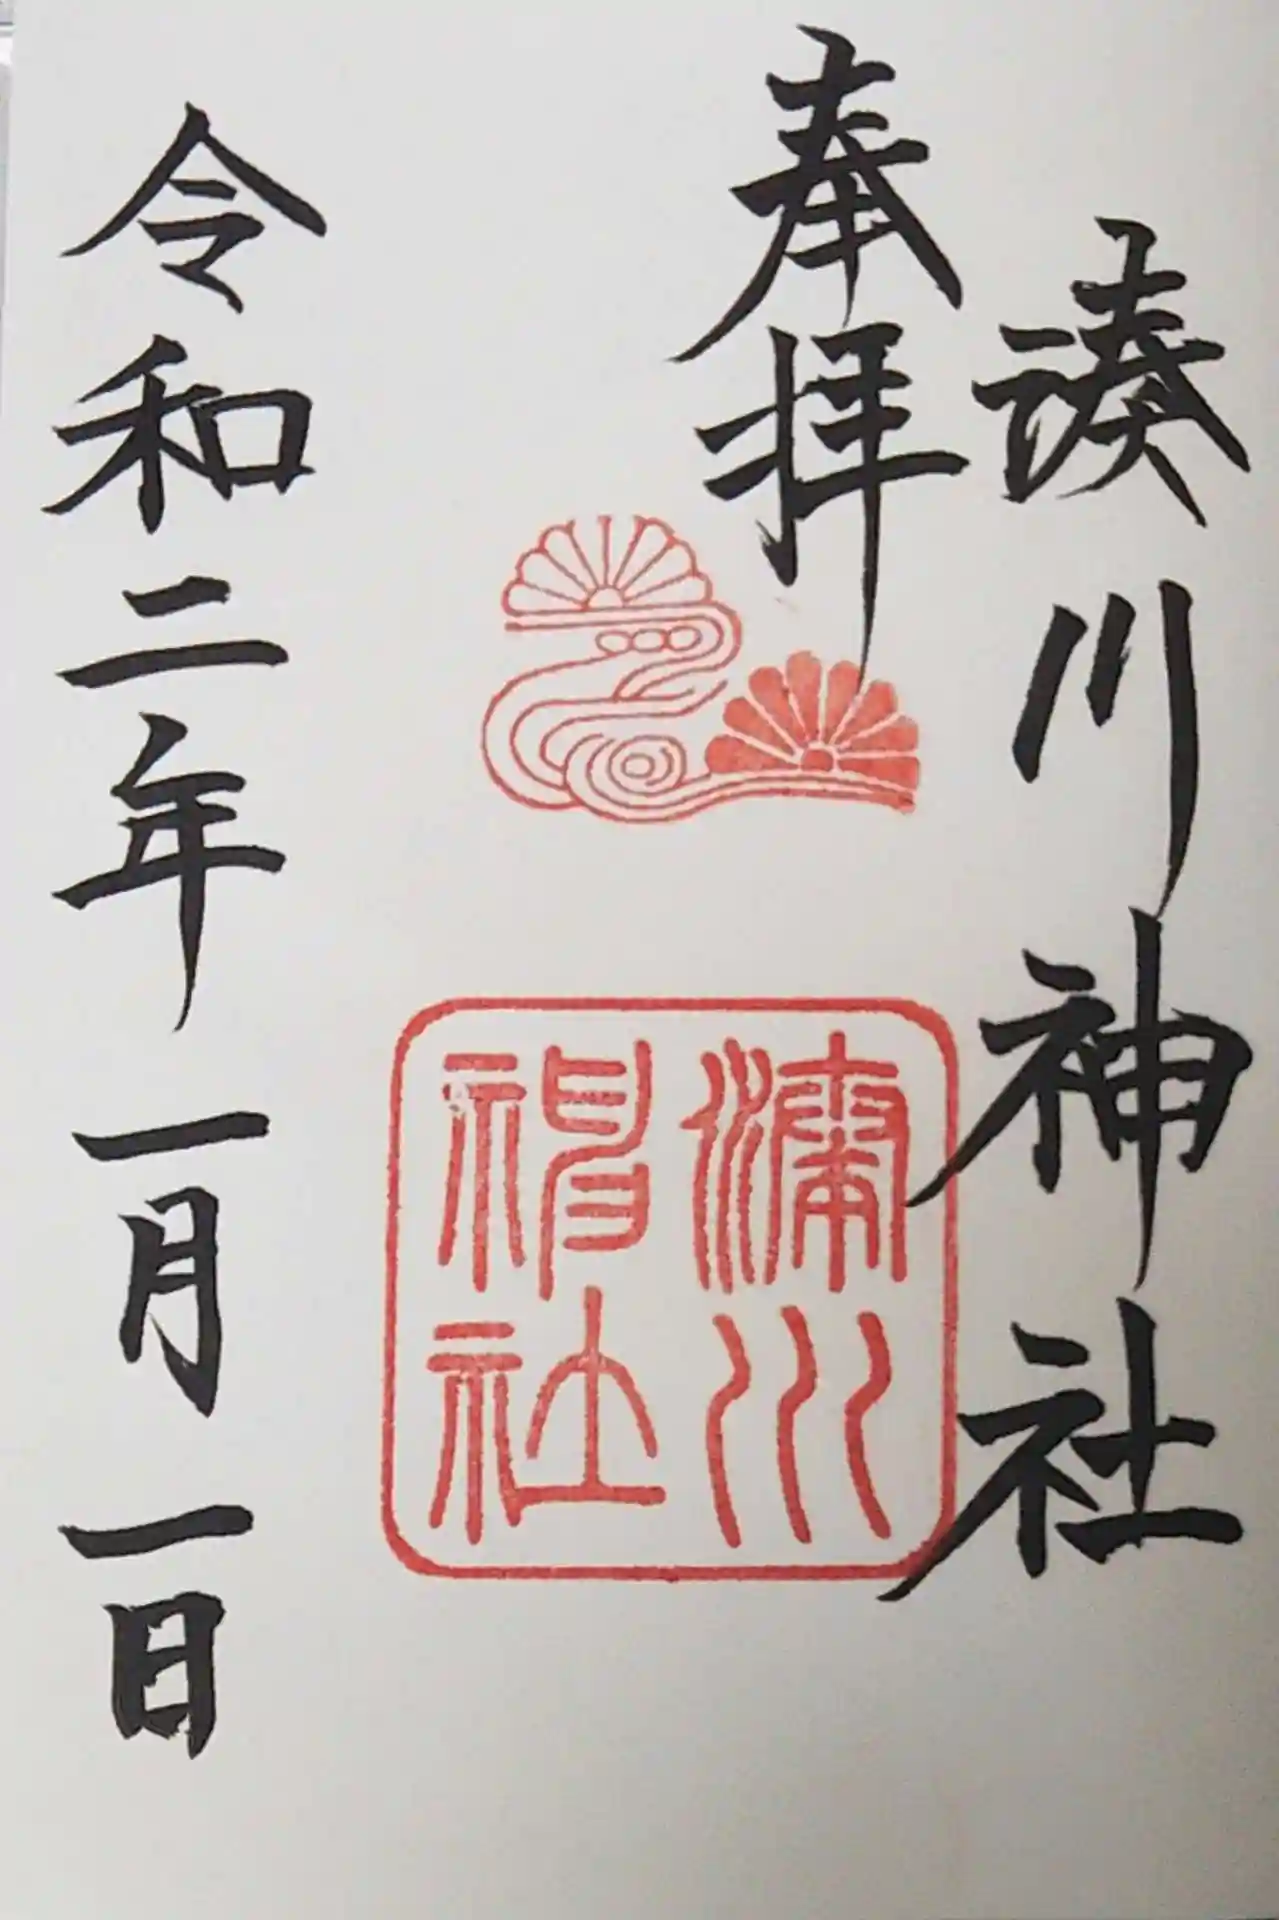 湊川神社
奉拝
湊川
神社
令和二年一月一日